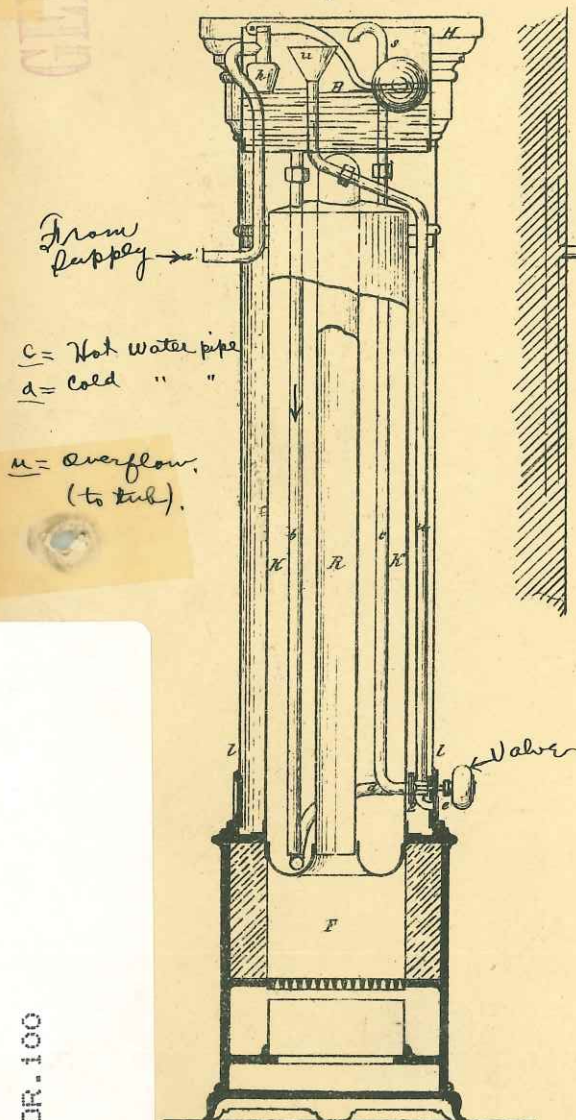 H
s
u
h
B
From
Supply → a'
c = Hot water pipe
d = Cold " "
u = Overflow.
(to tub).
b
c
u
K
R
K
l
l
Valve
d
e
F
DR.100